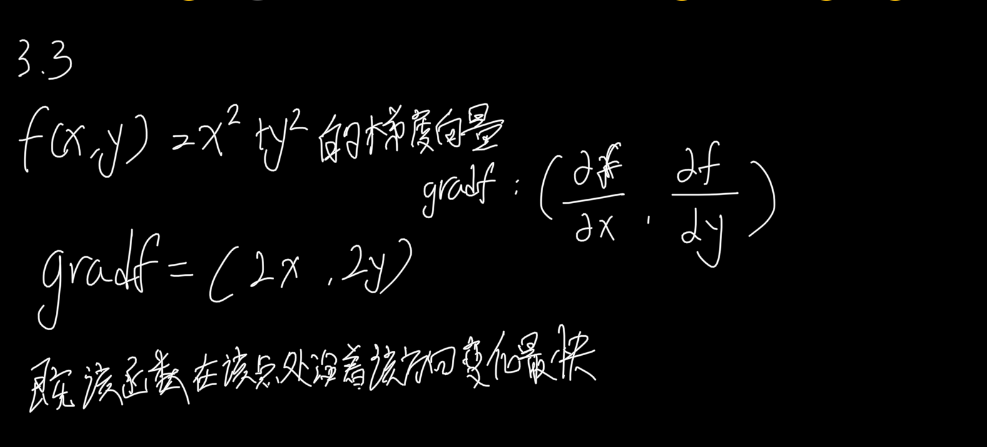 3.3
f(x,y)=x²+y² 的梯度向量
gradf : (∂f/∂x , ∂f/∂y)
gradf = (2x , 2y)
既该函数在该点处沿着该方向变化最快